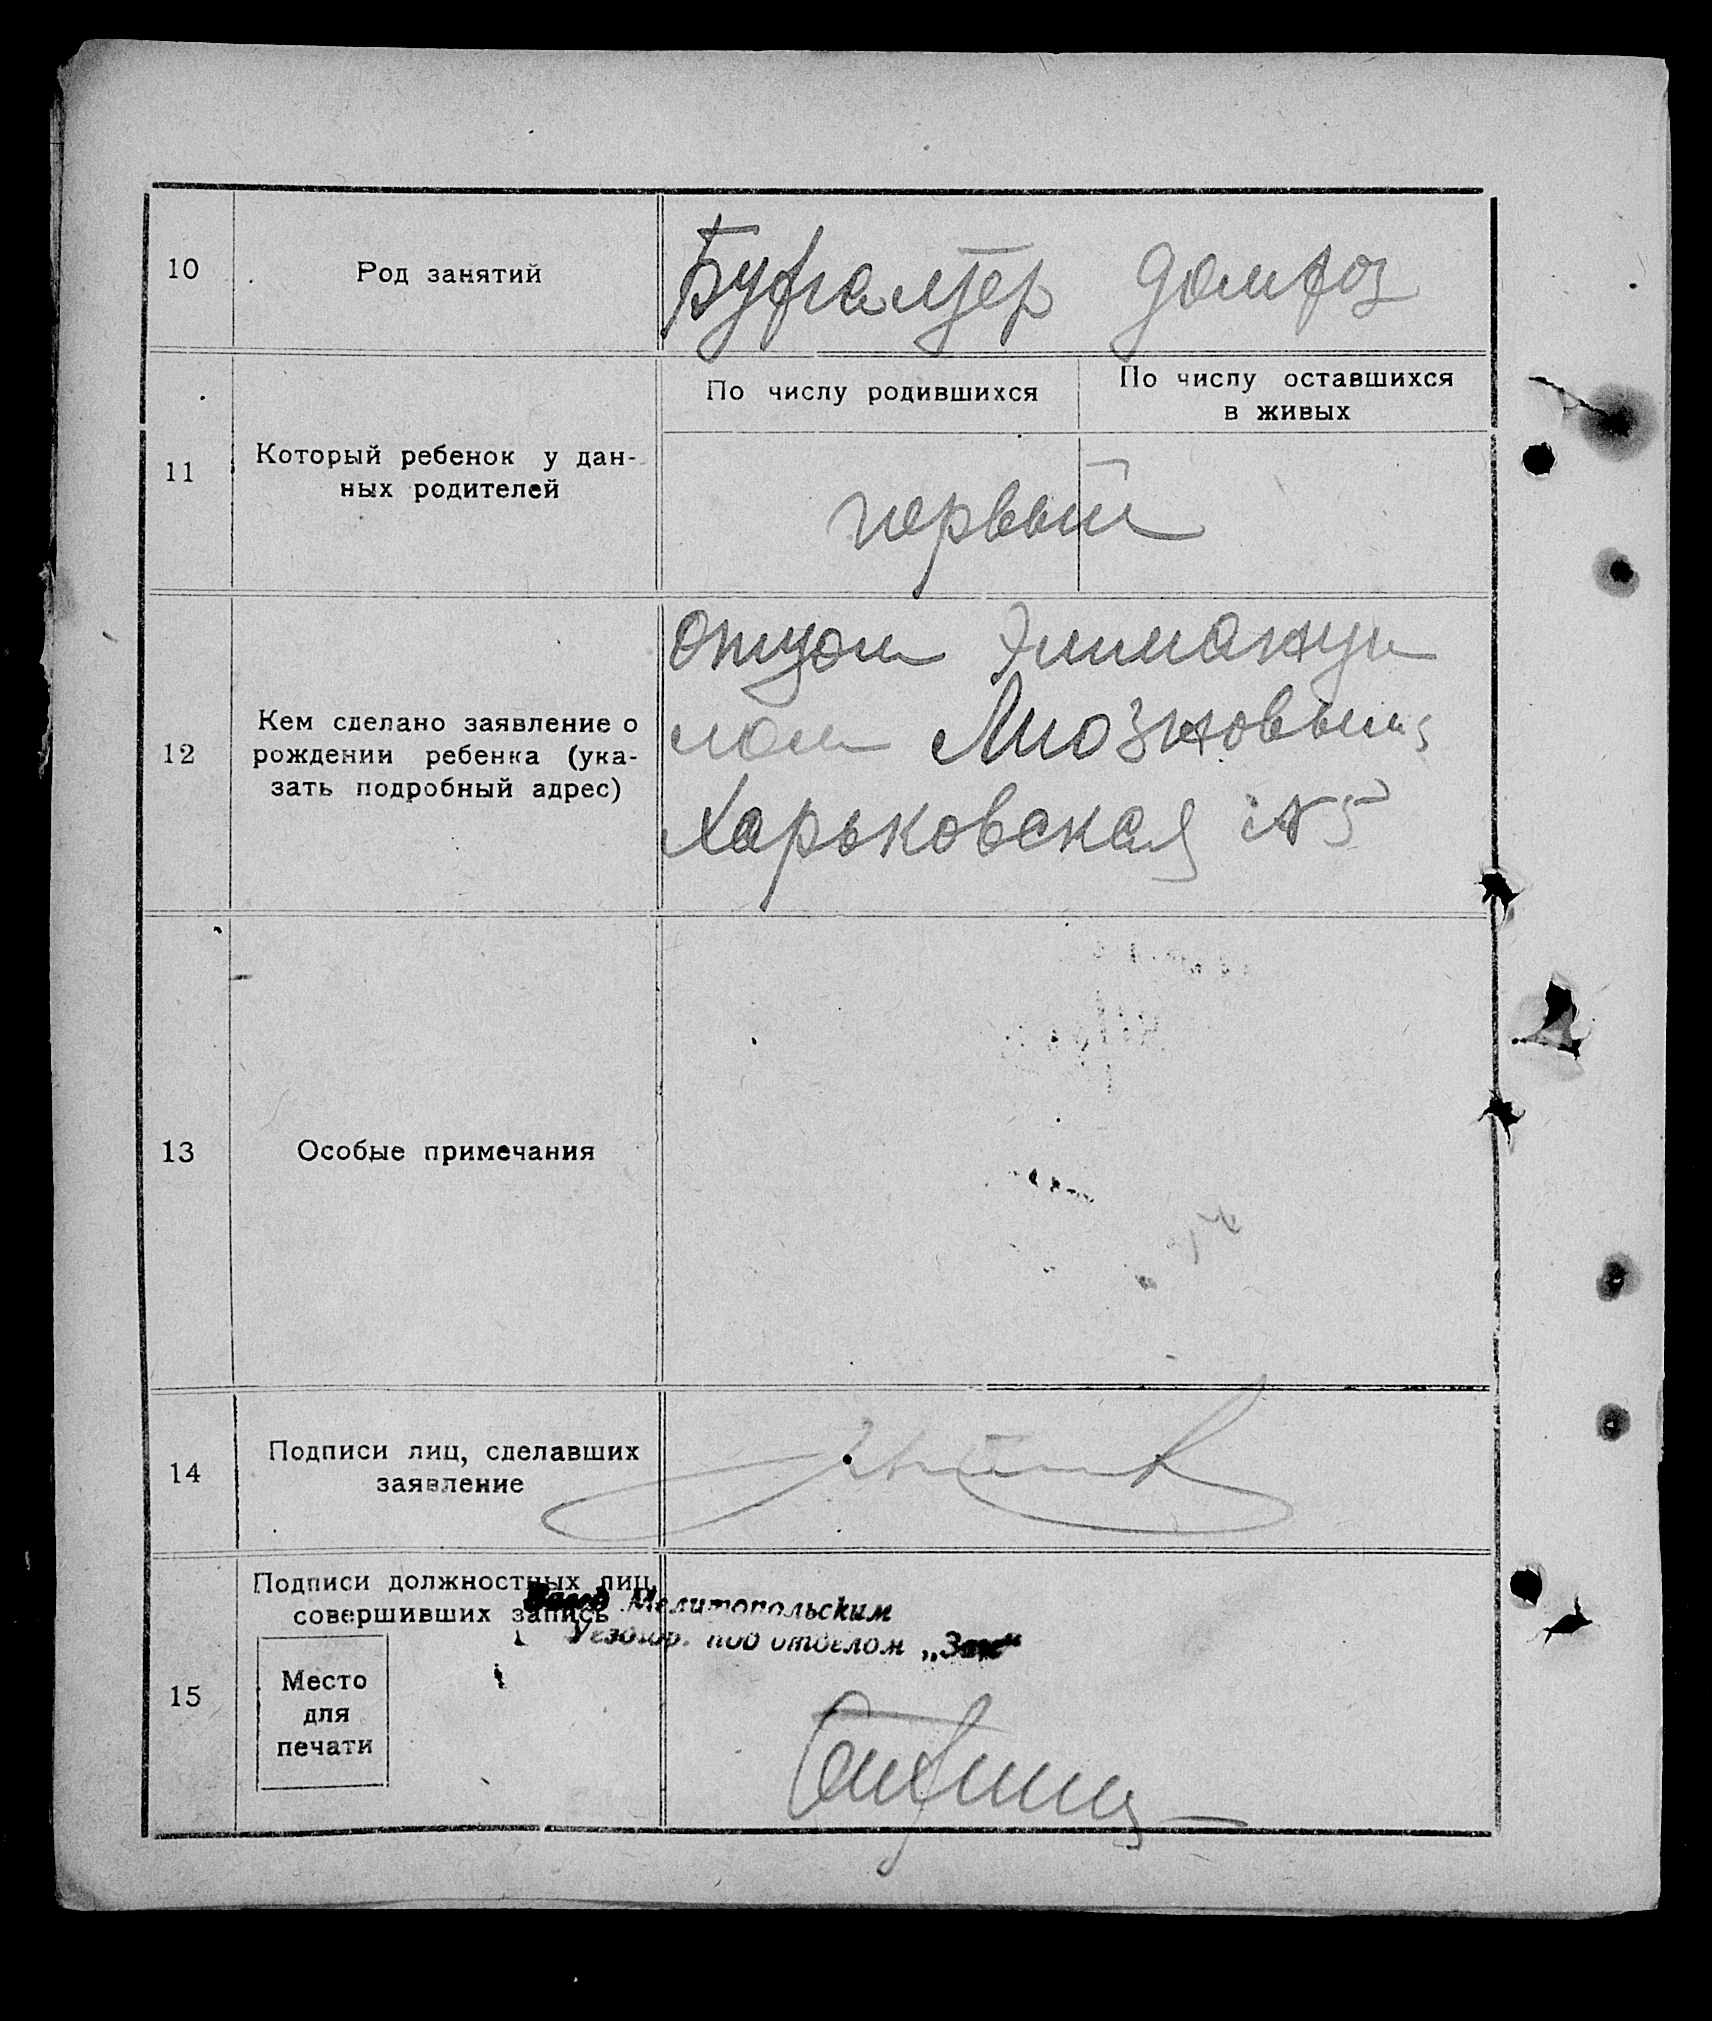 10
Род занятий
Бухгалтер домхоз
11
Который ребенок у дан-
ных родителей
По числу родившихся
По числу оставшихся
в живых
первый
12
Кем сделано заявление о
рождении ребенка (ука-
зать подробный адрес)
отцом Эммануи
лом
Харьковская № 5
13
Особые примечания
14
Подписи лиц, сделавших
заявление
15
Подписи должностных лиц,
совершивших запись
Место
для
печати
Мелитопольским
под отделом „Загс“